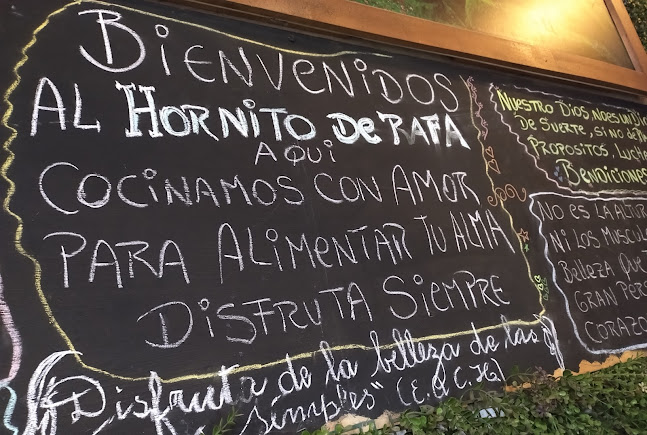 BIENVENIDOS
AL HORNITO DE RAFA
AQUI
COCINAMOS CON AMOR
PARA ALIMENTAR TU ALMA
DISFRUTA SIEMPRE
Disfruta de la belleza de las
simples" (E. & C. H)
NUESTRO DIOS, NO ES UN
DE SUERTE, SINO DE
PROPOSITOS, LUCHE
BENDICIONES
NO ES LA ALTUR
NI LOS MUSCUL
BELLEZA QUE
GRAN PERS
CORAZO